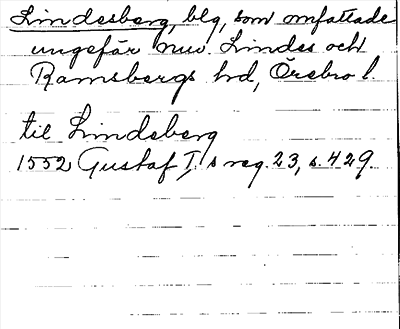 Lindesberg, blg, som omfattade
ungefär nuv. Lindes och
Ramsbergs hd, Örebro l
til Lindsberg
1552 Gustaf I:s reg. 23, s. 429.